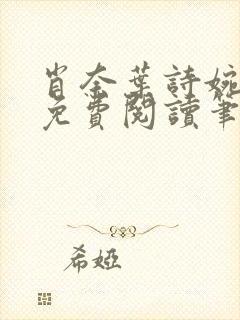 肖奈葉詩婉
免費閱讀筆
希婭